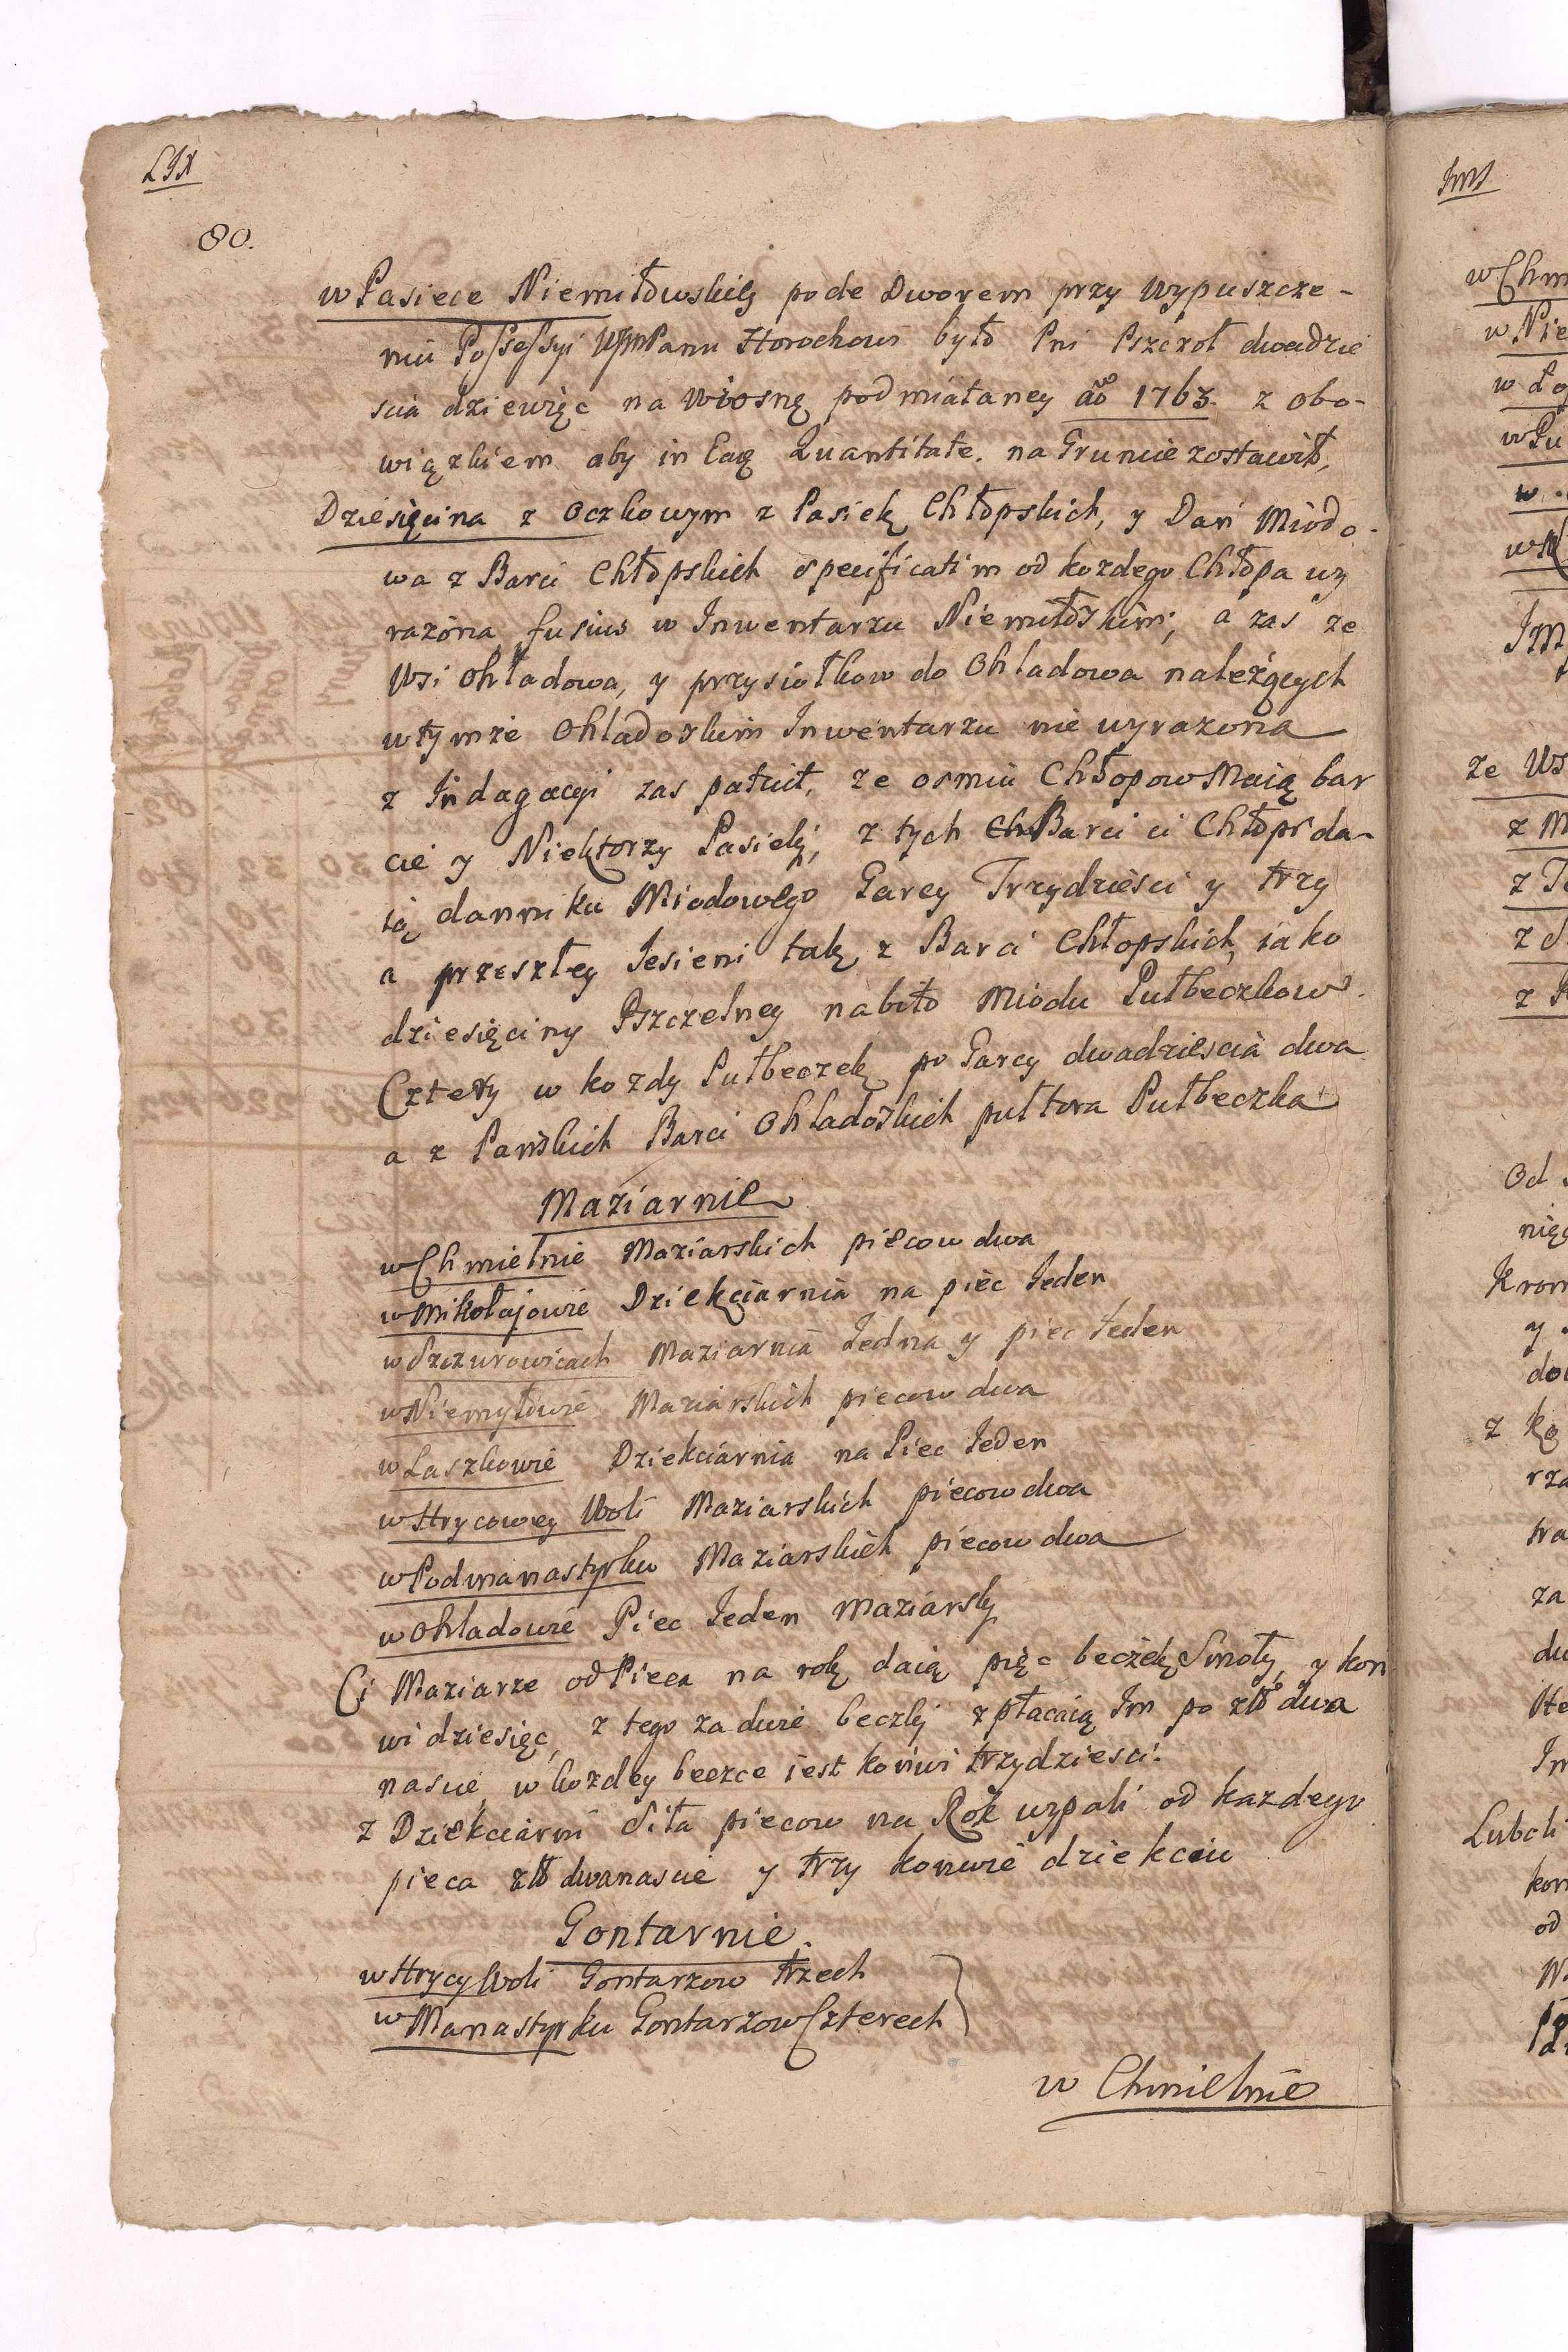 LIX
80.
w Pasiece Niemiłowskiey pode Dworem przy Wypuszcze-
niu Possessyi Panu Horochowi było Pni Pszczoł dwadzie
scia dziewięc na Wiosnę podmiataney aõ 1763. z obo-
wiązkiem aby in Eaq Quantitate. na Gruncie zostawił,
Dziesięcina z Oczkowym z Pasiek Chłopskich, y Dań Miodo-
wa z Barci Chłopskich specificatim od kozdego Chłopa wy
razona fusius w Inwentarzu Niemiłoskim; a zas ze
Wsi Ohladowa, y przysiołkow do Ohladowa należących
w tymże Ohladoskim Inwentarzu nie wyrazona
z Indagacyi zas patuit, ze osmiu Chłopow Maią bar
cie y Niektorzy Pasieki, z tych Barci ci Chłopi da-
ią danniku Miodowego Garcy Trzydzieści y trzy
a przeszłey Jesieni tak z Barci Chłopskich, iako
dziesięciny Pszczelney nabito Miodu Pułbeczkow
Cztery w kozdy Pułbeczek po Garcy dwadziescia dwa
a z Pańskich Barci Ohladoskich pułtora Pułbeczka
Maziarnie
w Chmielnie Maziarskich piecow dwa
w Mikołajowie Dziekciarnia na piec Jeden
w Szczurowicach Maziarnia Jedna y piec Jeden
w Niemyłowie Maziarskich piecow dwa
w Laszkowie Dziekciarnia na Piec Jeden
w Hrycowey Woli Maziarskich piecow dwa
w Podmanastyrku Maziarskich piecow dwa
w Ohladowie Piec Jeden Maziarsky
Ci Maziarze od Pieca na rok daią pięc beczek Smoły, y kon
wi dziesięc, z tego za dwie beczki zpłacaią Im po złł dwa
nascie, w kozdey beczce iest konwi trzydziesci.
z Dziekciarni siła piecow na Rok wypali od kazdego
pieca złł dwanascie y trzy konwie dziekciu
Gontarnie.
w Hrycy Woli Gontarzow trzech
w Manastyrku Gontarzow Czterech
w Chmielnie